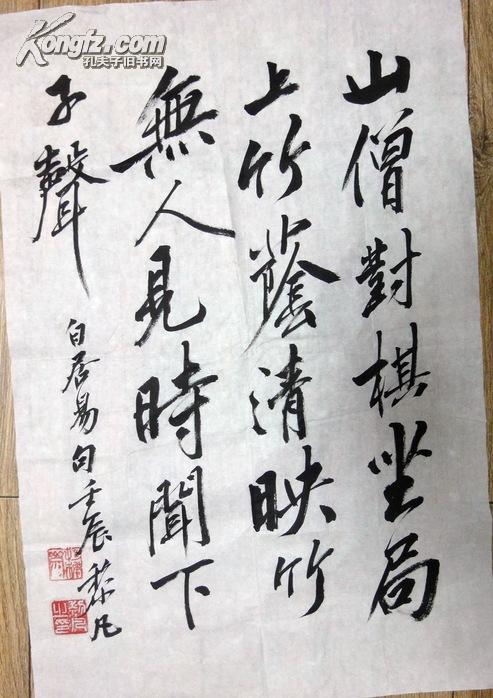 山僧對棋坐局
上竹蔭清映竹
無人見時聞下
子聲
白居易句壬辰黎凡
Kongfz.com
孔夫子旧书网